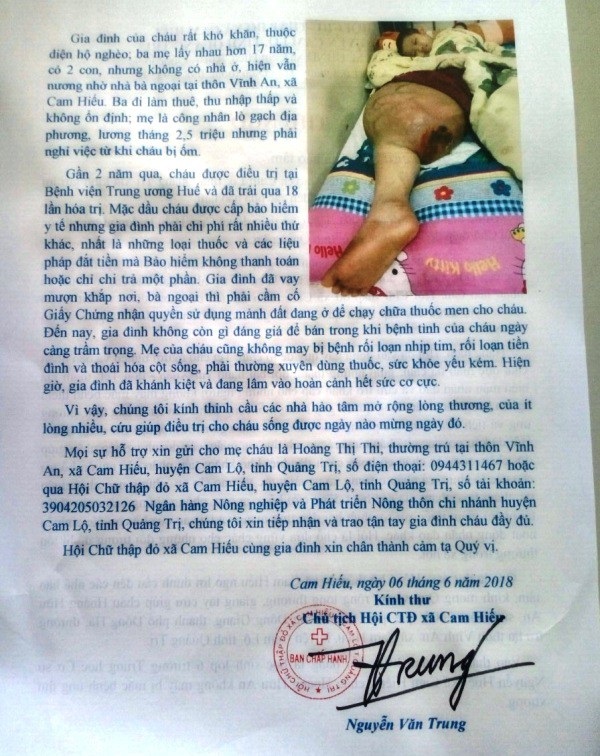 Gia đình của cháu rất khó khăn, thuộc
diện hộ nghèo; ba mẹ lấy nhau hơn 17 năm,
có 2 con, nhưng không có nhà ở, hiện vẫn
nương nhờ nhà bà ngoại tại thôn Vĩnh An, xã
Cam Hiếu. Ba đi làm thuê, thu nhập thấp và
không ổn định; mẹ là công nhân lò gạch địa
phương, lương tháng 2,5 triệu nhưng phải
nghỉ việc từ khi cháu bị ốm.
Gần 2 năm qua, cháu được điều trị tại
Bệnh viện Trung ương Huế và đã trải qua 18
lần hóa trị. Mặc dầu cháu được cấp bảo hiểm
y tế nhưng gia đình phải chi phí rất nhiều thứ
khác, nhất là những loại thuốc và các liệu
pháp đắt tiền mà Bảo hiểm không thanh toán
hoặc chỉ chi trả một phần. Gia đình đã vay
mượn khắp nơi, bà ngoại thì phải cầm cố
Giấy Chứng nhận quyền sử dụng mảnh đất đang ở để chạy chữa thuốc men cho cháu.
Đến nay, gia đình không còn gì đáng giá để bán trong khi bệnh tình của cháu ngày
càng trầm trọng. Mẹ của cháu cũng không may bị bệnh rối loạn nhịp tim, rối loạn tiền
đình và thoái hóa cột sống, phải thường xuyên dùng thuốc, sức khỏe yếu kém. Hiện
giờ, gia đình đã khánh kiệt và đang lâm vào hoàn cảnh hết sức cơ cực.
Vì vậy, chúng tôi kính thỉnh cầu các nhà hảo tâm mở rộng lòng thương, của ít
lòng nhiều, cứu giúp điều trị cho cháu sống được ngày nào mừng ngày đó.
Mọi sự hỗ trợ xin gửi cho mẹ cháu là Hoàng Thị Thi, thường trú tại thôn Vĩnh
An, xã Cam Hiếu, huyện Cam Lộ, tỉnh Quảng Trị, số điện thoại: 0944311467 hoặc
qua Hội Chữ thập đỏ xã Cam Hiếu, huyện Cam Lộ, tỉnh Quảng Trị, số tài khoản:
3904205032126 Ngân hàng Nông nghiệp và Phát triển Nông thôn chi nhánh huyện
Cam Lộ, tỉnh Quảng Trị, chúng tôi xin tiếp nhận và trao tận tay gia đình cháu đầy đủ.
Hội Chữ thập đỏ xã Cam Hiếu cùng gia đình xin chân thành cảm tạ Quý vị.
Cam Hiếu, ngày 06 tháng 6 năm 2018
Kính thư
Chủ tịch Hội CTĐ xã Cam Hiếu
BAN CHẤP HÀNH
Trung
Nguyễn Văn Trung
Hello Kitty
Hello Kitty